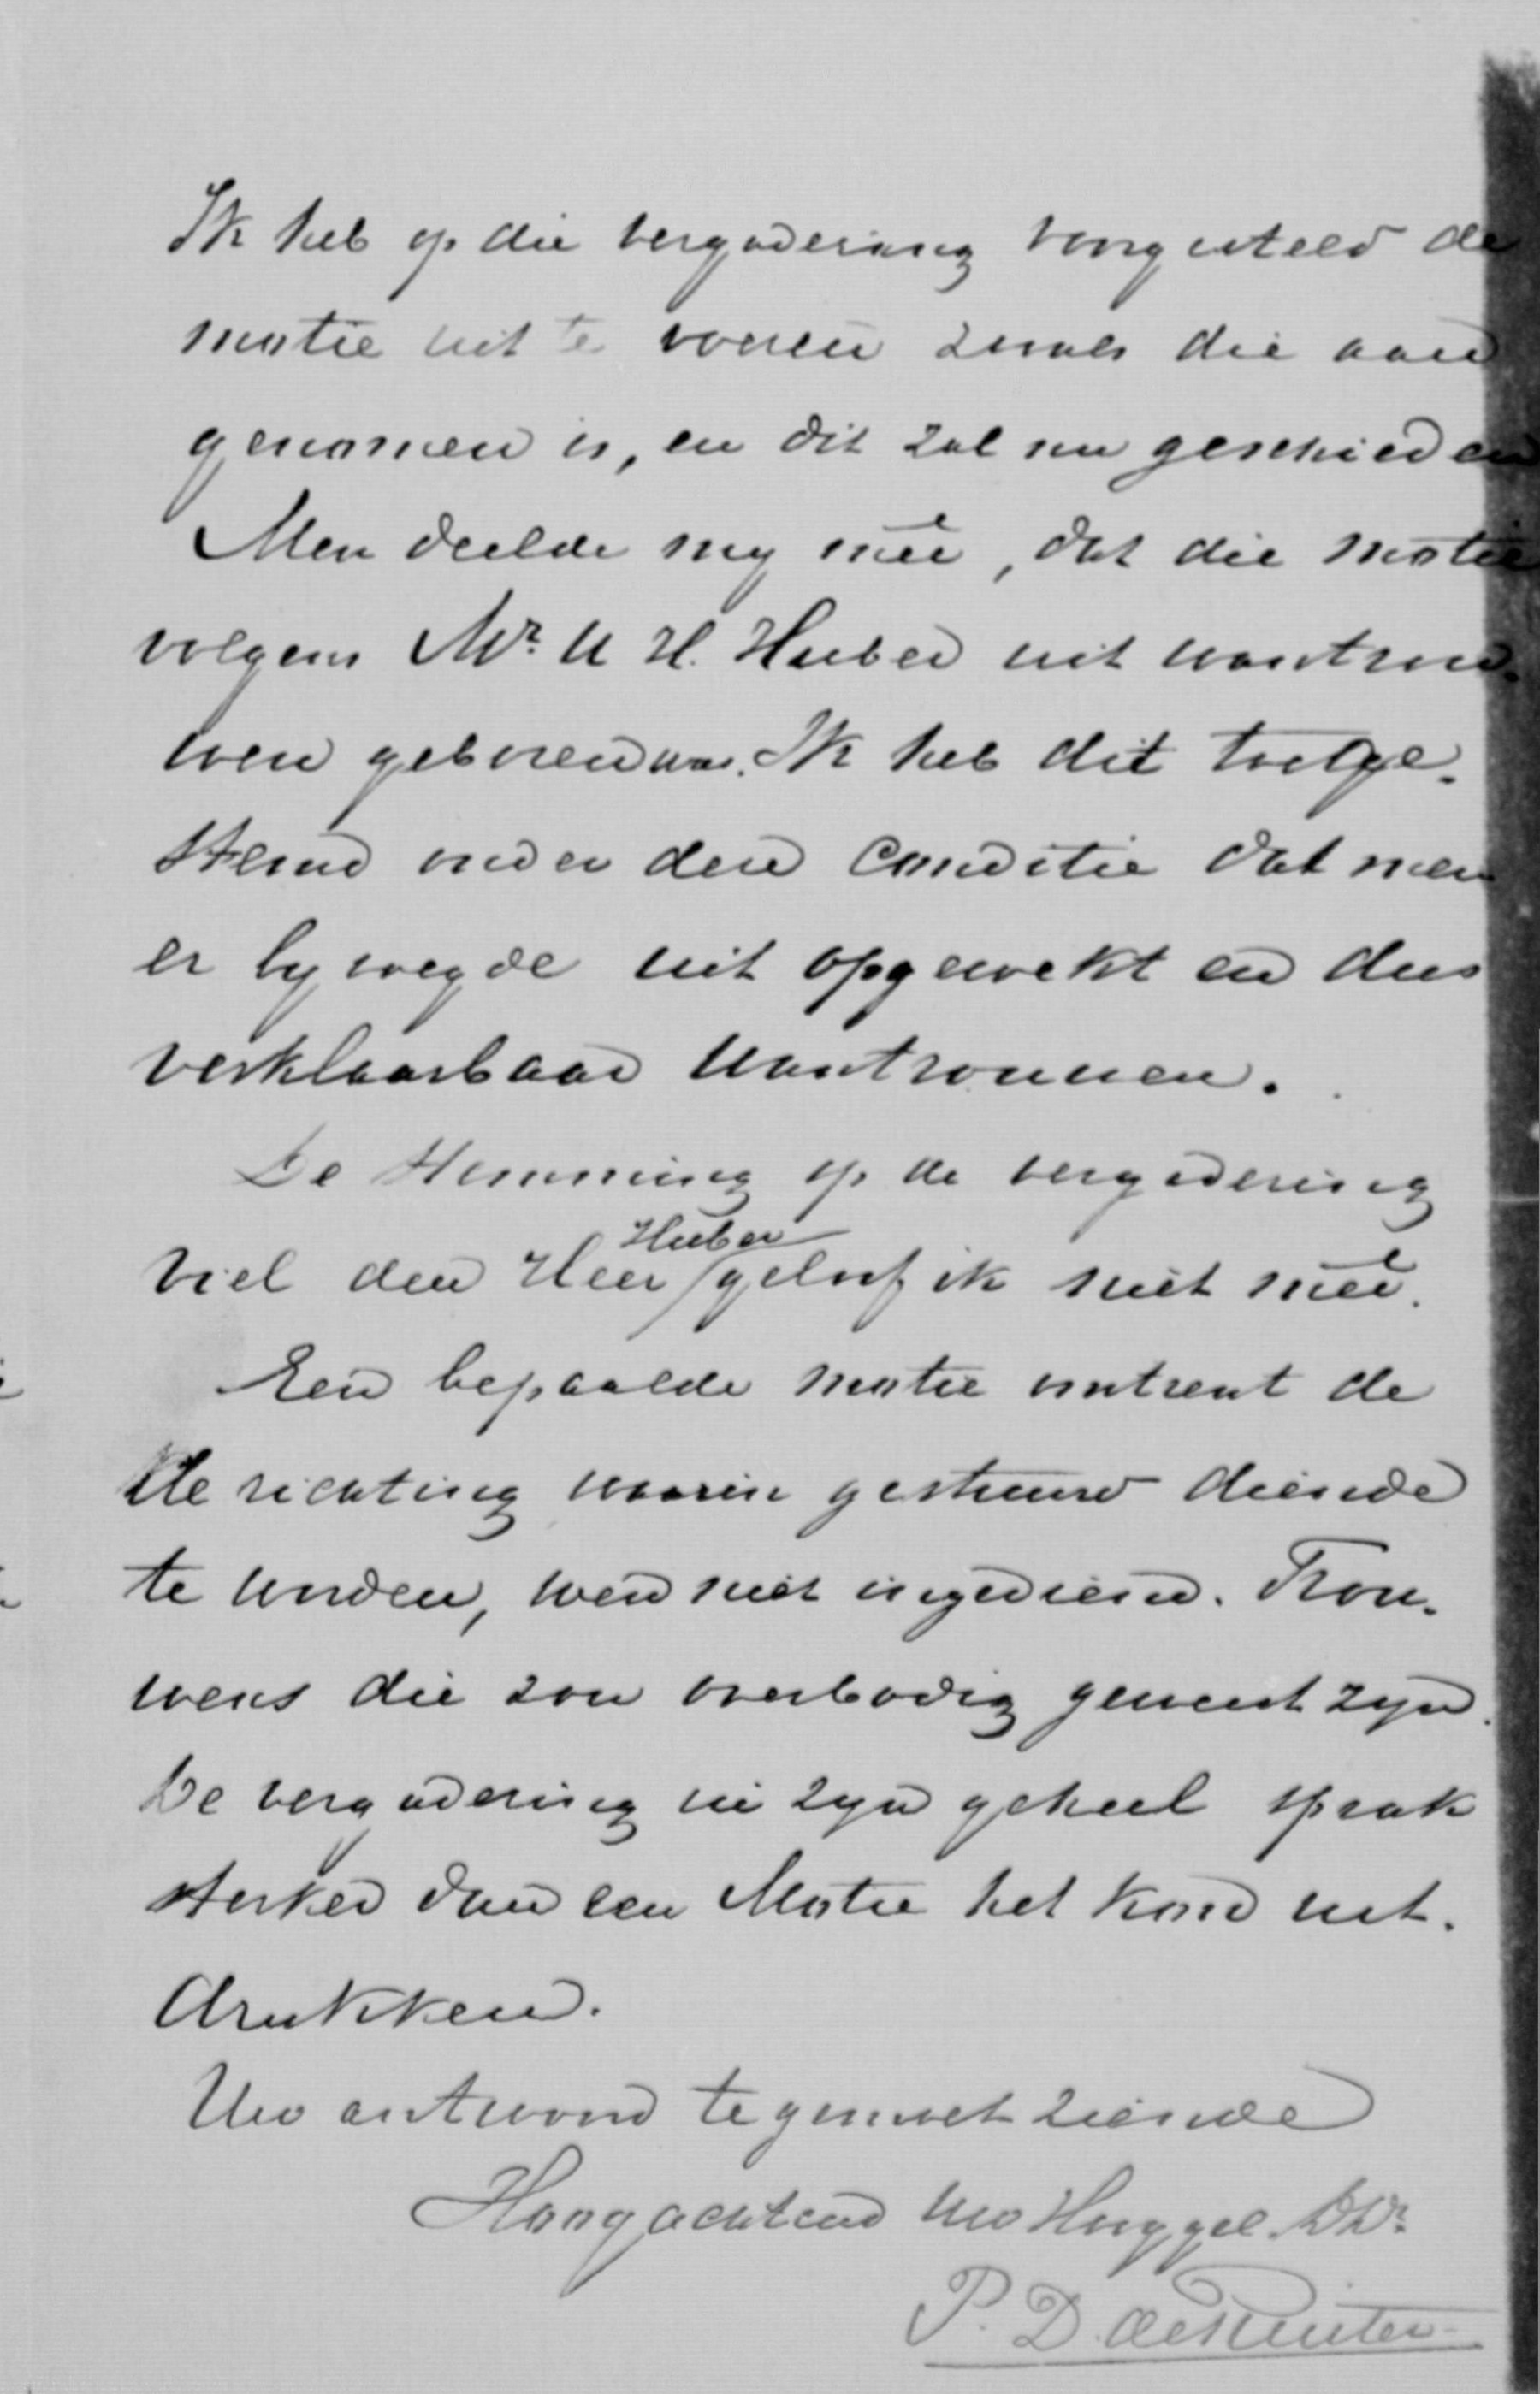 Ik heb op die vergadering voorgesteld de
motie uit te voeren zooals die aan
genomen is, en dit zal nu geschieden
Men deelde my mee, dat die motie
volgens Mr. U H. Huber uit wantrou-
wen geboren was. Ik heb dit toege-
stemd onder deze conditie dat men
er byvoegde uit opgewekt en dus
verklaarbaar wantrouwen.
De stemming op de vergadering
viel den Heer Huber geloof ik niet mee.
Een bepaalde motie omtrent de
de richting waarin gestuurd diende
te worden, werd niet ingediend. Trou-
wens die zou overbodig geweest zyn.
De vergadering in zyn geheel sprak
sterker dan een Motie het kon uit-
drukken.
Uw antwoord tegemoet ziende
Hoogachtend Uw Hooggel. DWr.
P. D. de Ruiter